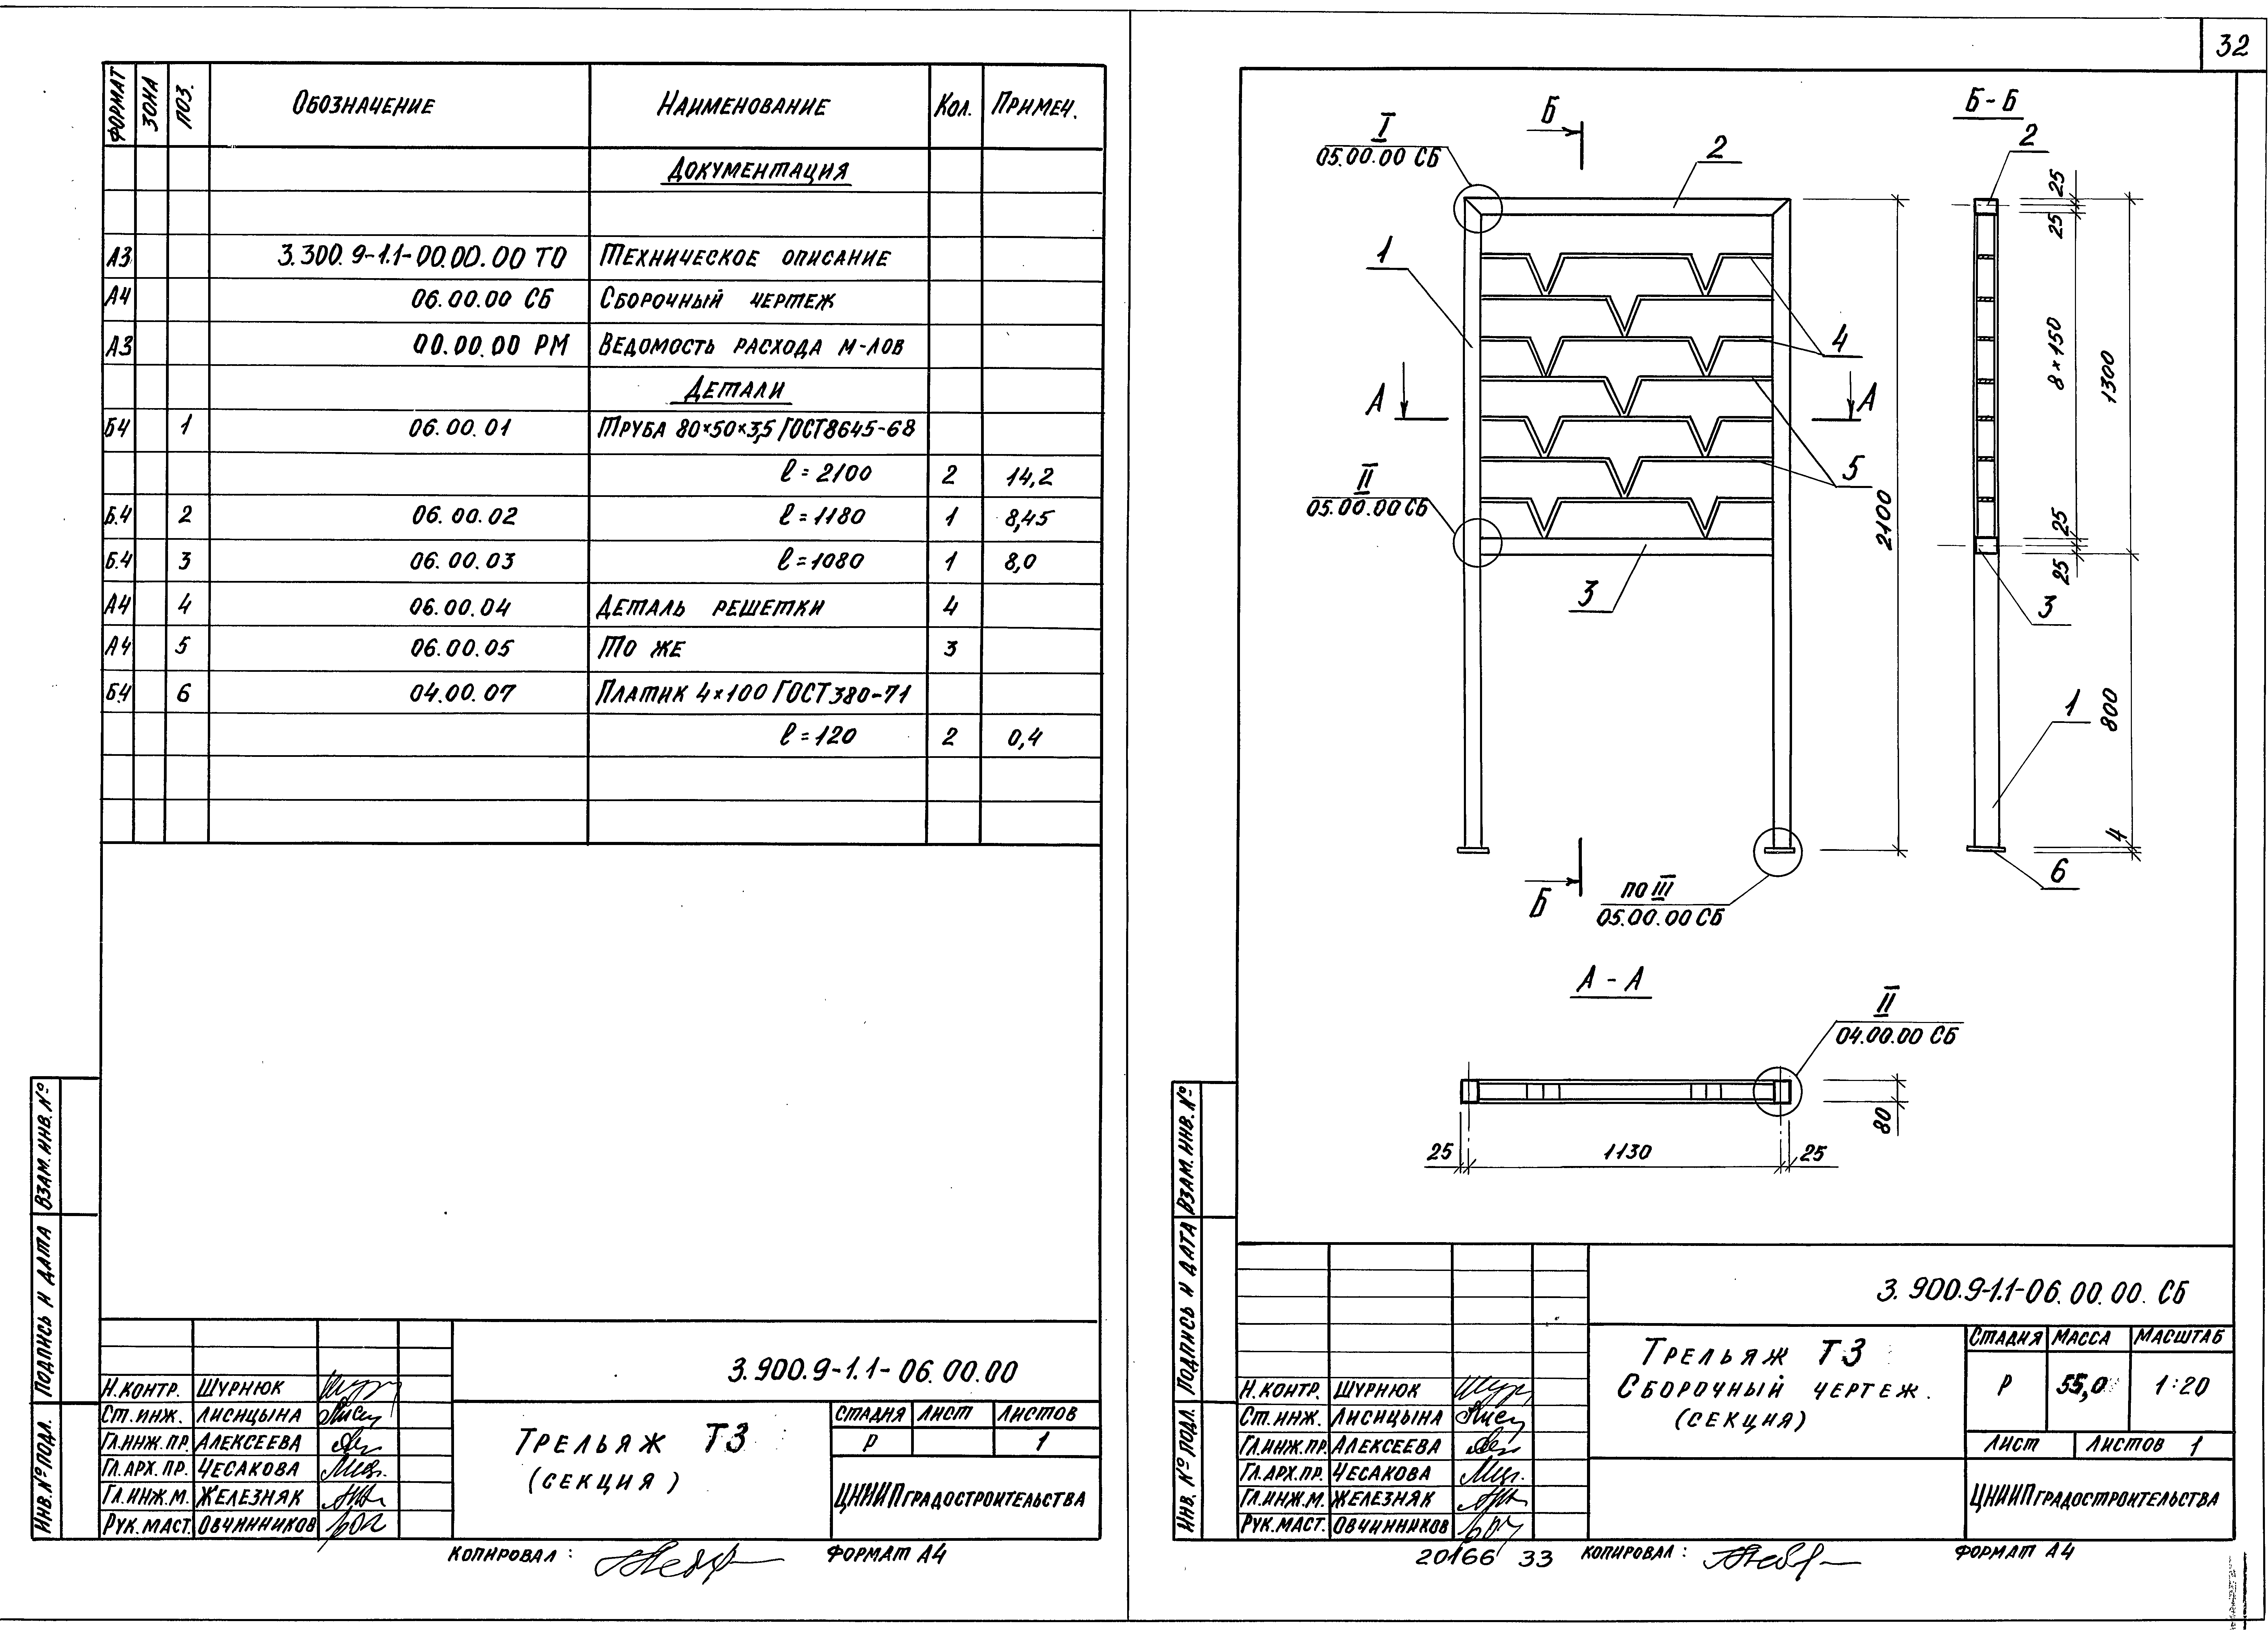 ФОРМАТ ЗОНА ПОЗ. ОБОЗНАЧЕНИЕ НАИМЕНОВАНИЕ КОЛ. ПРИМЕЧ.
ДОКУМЕНТАЦИЯ
А3 3.300.9-1.1-00.00.00 ТО ТЕХНИЧЕСКОЕ ОПИСАНИЕ
А4 06.00.00 СБ СБОРОЧНЫЙ ЧЕРТЕЖ
А3 00.00.00 РМ ВЕДОМОСТЬ РАСХОДА М-ЛОВ
ДЕТАЛИ
Б4 1 06.00.01 ТРУБА 80×50×3,5 ГОСТ8645-68
ℓ=2100 2 14,2
Б.4 2 06.00.02 ℓ=1180 1 8,45
Б.4 3 06.00.03 ℓ=1080 1 8,0
А4 4 06.00.04 ДЕТАЛЬ РЕШЕТКИ 4
А4 5 06.00.05 ТО ЖЕ 3
Б.4 6 04.00.07 ПЛАТИК 4×100 ГОСТ380-71
ℓ=120 2 0,4
ВЗАМ.ИНВ.№
ПОДПИСЬ И ДАТА
ИНВ.№ПОДЛ.
3.900.9-1.1-06.00.00
Н.КОНТР. ШУРНЮК
СТ.ИНЖ. ЛИСИЦЫНА
ГЛ.ИНЖ.ПР. АЛЕКСЕЕВА
ГЛ.АРХ.ПР. ЧЕСАКОВА
ГЛ.ИНЖ.М. ЖЕЛЕЗНЯК
РУК.МАСТ. ОВЧИННИКОВ
ТРЕЛЬЯЖ Т3
(СЕКЦИЯ)
СТАДИЯ ЛИСТ ЛИСТОВ
Р 1
ЦНИИПГРАДОСТРОИТЕЛЬСТВА
КОПИРОВАЛ: ФОРМАТ А4
32
I
05.00.00 СБ
Б
2
1
4
А А
5
II
05.00.00 СБ
3
2100
Б
ПО III
05.00.00 СБ
Б-Б
2
25
25
8×150
1300
25
25
3
1
800
4
6
А-А
II
04.00.00 СБ
80
25 1130 25
ВЗАМ.ИНВ.№
ПОДПИСЬ И ДАТА
ИНВ.№ ПОДЛ.
3.900.9-1.1-06.00.00. СБ
Н.КОНТР. ШУРНЮК
СТ.ИНЖ. ЛИСИЦЫНА
ГЛ.ИНЖ.ПР. АЛЕКСЕЕВА
ГЛ.АРХ.ПР. ЧЕСАКОВА
ГЛ.ИНЖ.М. ЖЕЛЕЗНЯК
РУК.МАСТ. ОВЧИННИКОВ
ТРЕЛЬЯЖ Т3
СБОРОЧНЫЙ ЧЕРТЕЖ.
(СЕКЦИЯ)
СТАДИЯ МАССА МАСШТАБ
Р 55,0 1:20
ЛИСТ ЛИСТОВ 1
ЦНИИПГРАДОСТРОИТЕЛЬСТВА
20166 33 КОПИРОВАЛ: ФОРМАТ А4